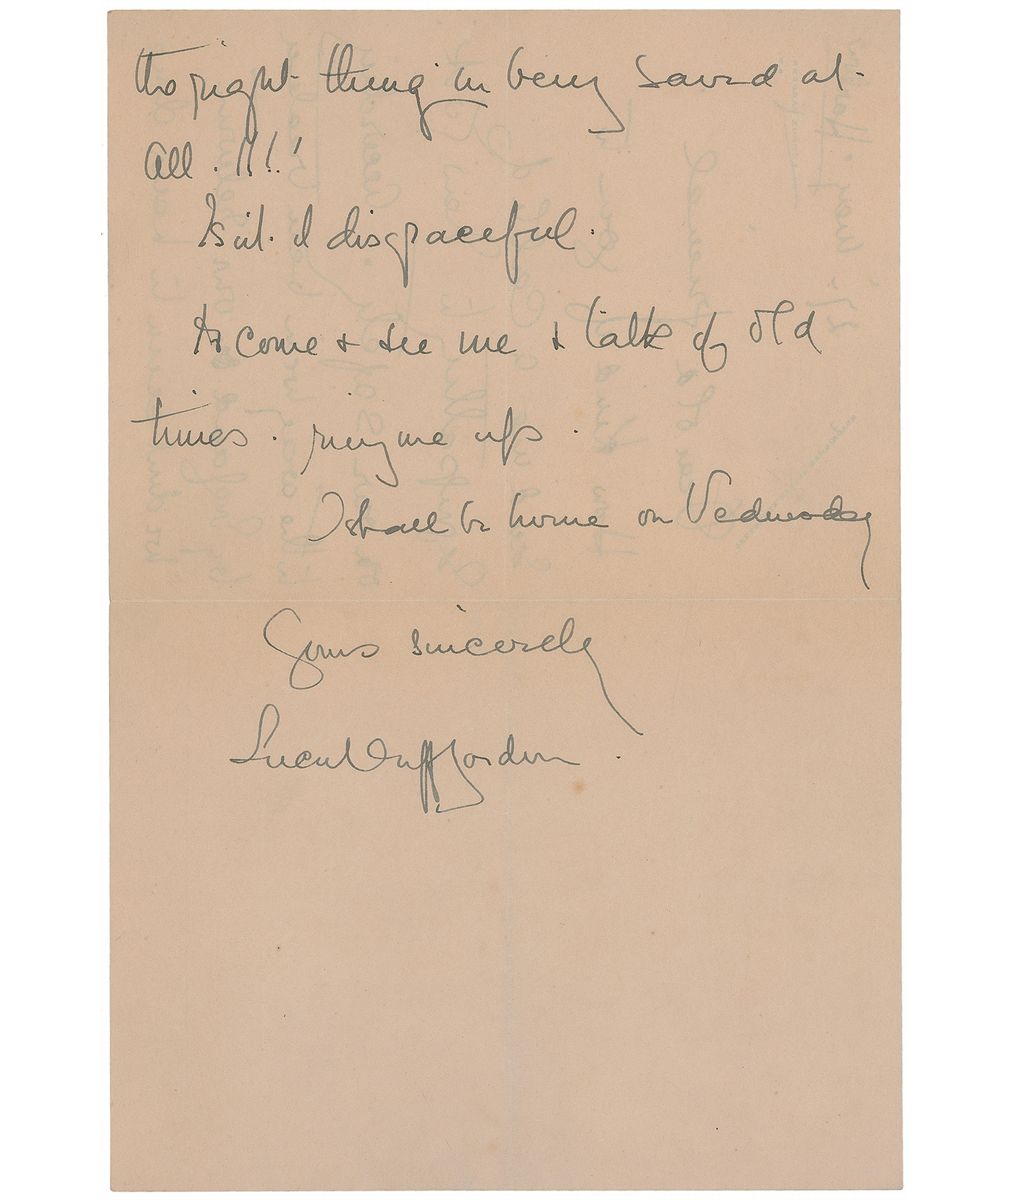 the right thing in being saved at
all. !!!!
Is it. I disgraceful.
come & see me & talk of old
times. ring me up.
I shall be home on Wednesday
Yours sincerely
Lucile Duff Gordon.